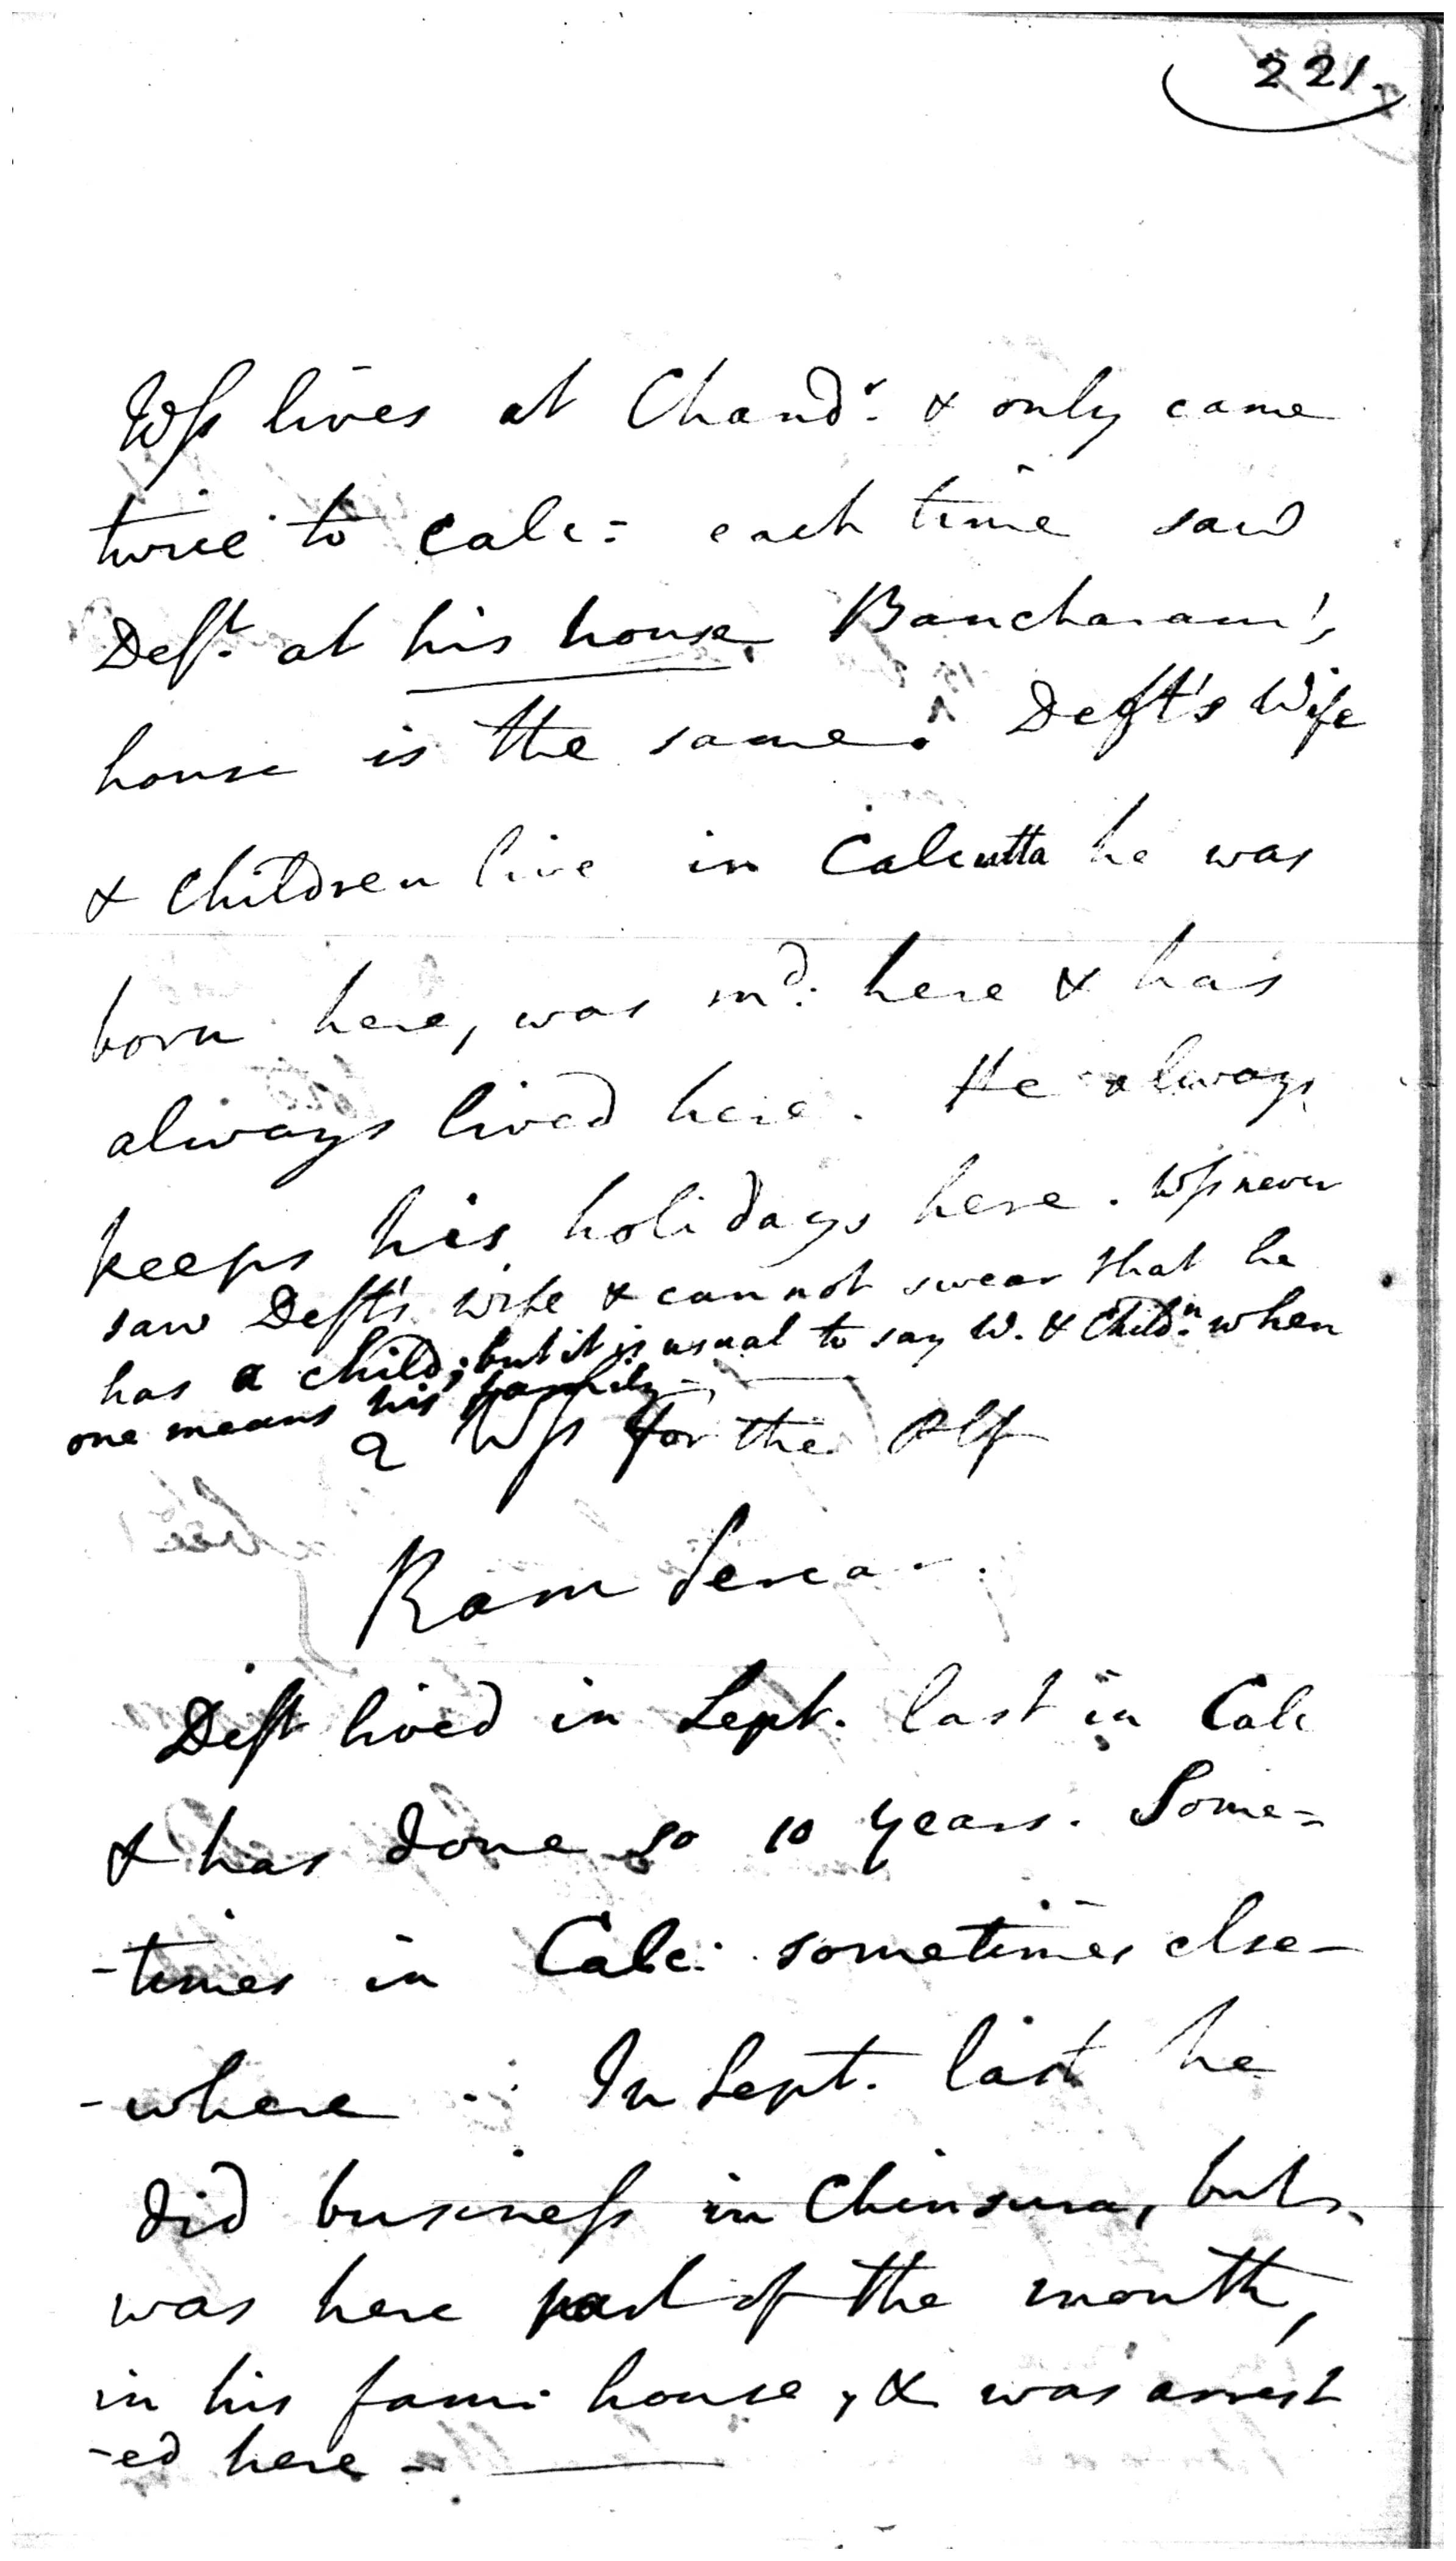 221.
Wss lives at Chandr. & only came
twice to Calc: each time saw
Deft. at his house. Bancharam's
house is the same. Deft's Wife
& children live in Calcutta he was
born here, was md. here & has
always lived here. He always
keeps his holidays here. Wss never
saw Deft's wife & cannot swear that he
has a child; but it is usual to say W. & Childn. when
one means his family.
2 Wss for the Plf
Ram Sercar.
Deft lived in Sept. last in Calc
& has done so 10 years. Some=
-times in Calc: sometimes else-
-where. In Sept. last he
did business in Chinsura, but
was here part of the month,
in his fam: house, & was arrest
-ed here -